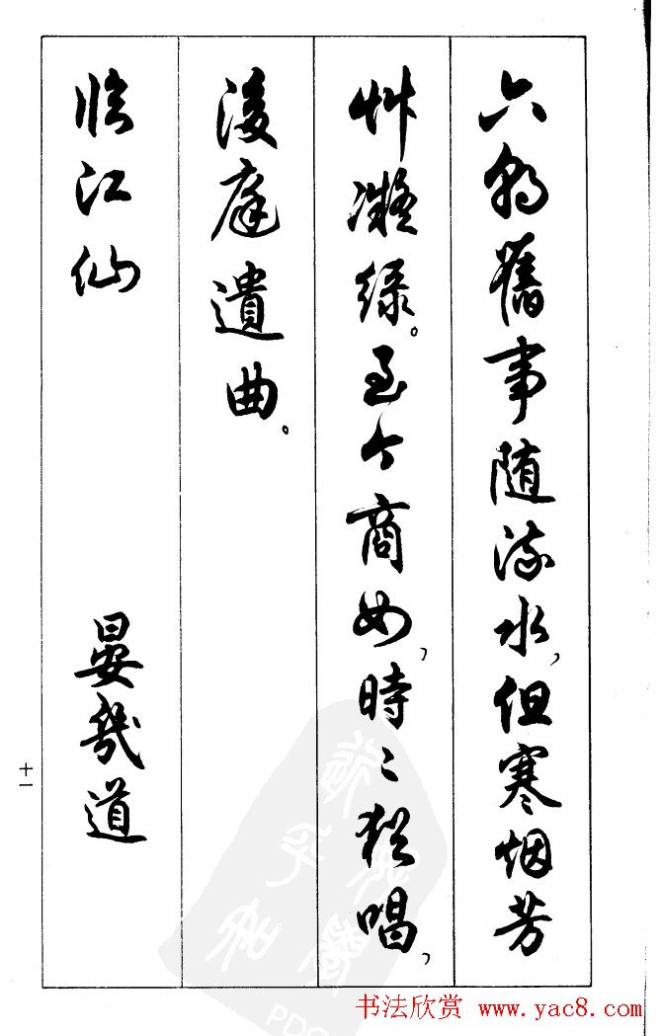 六朝舊事随流水，但寒烟芳
艸凝绿。至今商女，時〻猶唱，
後庭遺曲。
临江仙 晏幾道
十一
书法欣赏 www.yac8.com